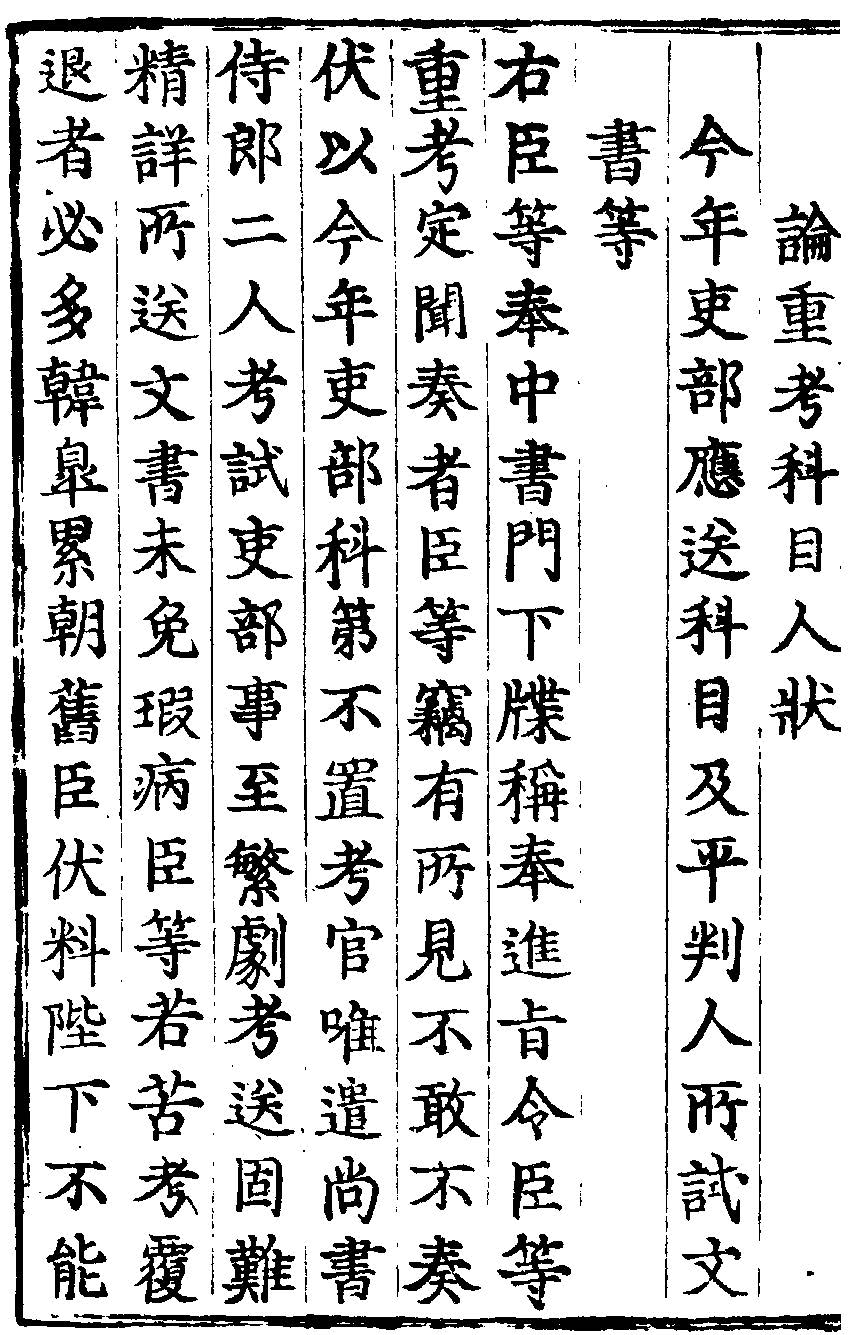 論重考科目人狀
今年吏部應送科目及平判人所試文
書等
右臣等奉中書門下牒稱奉進旨令臣等
重考定聞奏者臣等竊有所見不敢不奏
伏以今年吏部科第不置考官唯遣尚書
侍郎二人考試吏部事至繁劇考送固難
精詳所送文書未免瑕病臣等若苦考覆
退者必多韓臯累朝舊臣伏料陛下不能